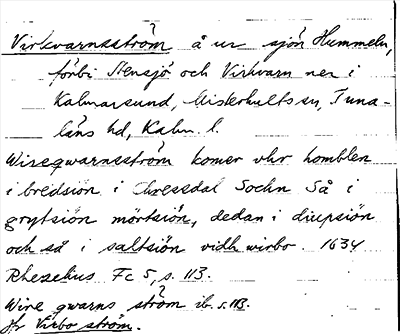 Virkvarnsström å ur sjön Hummeln,
förbi Stensjö och Virkvarn ner i
Kalmarsund, Misterhults sn, Tuna-
läns hd, Kalm. l.
Wireqwarnsström komer vhr homblen
i bredsiön i Chressdal Sochn Så i
grytsiön mörtsiön, dedan i diupsiön
och så i saltsiön vidh wirbo. 1634
Rhezelius Fc 5, s. 113.
Wire qwarns ström ib. s. 113.
Jfr Virbo ström.